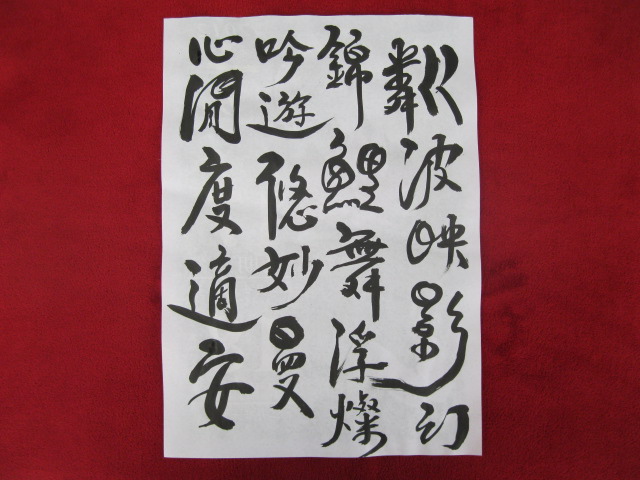 粼波映影幻
錦鯉舞浮燦
吟遊悠妙曼
心閒度適安